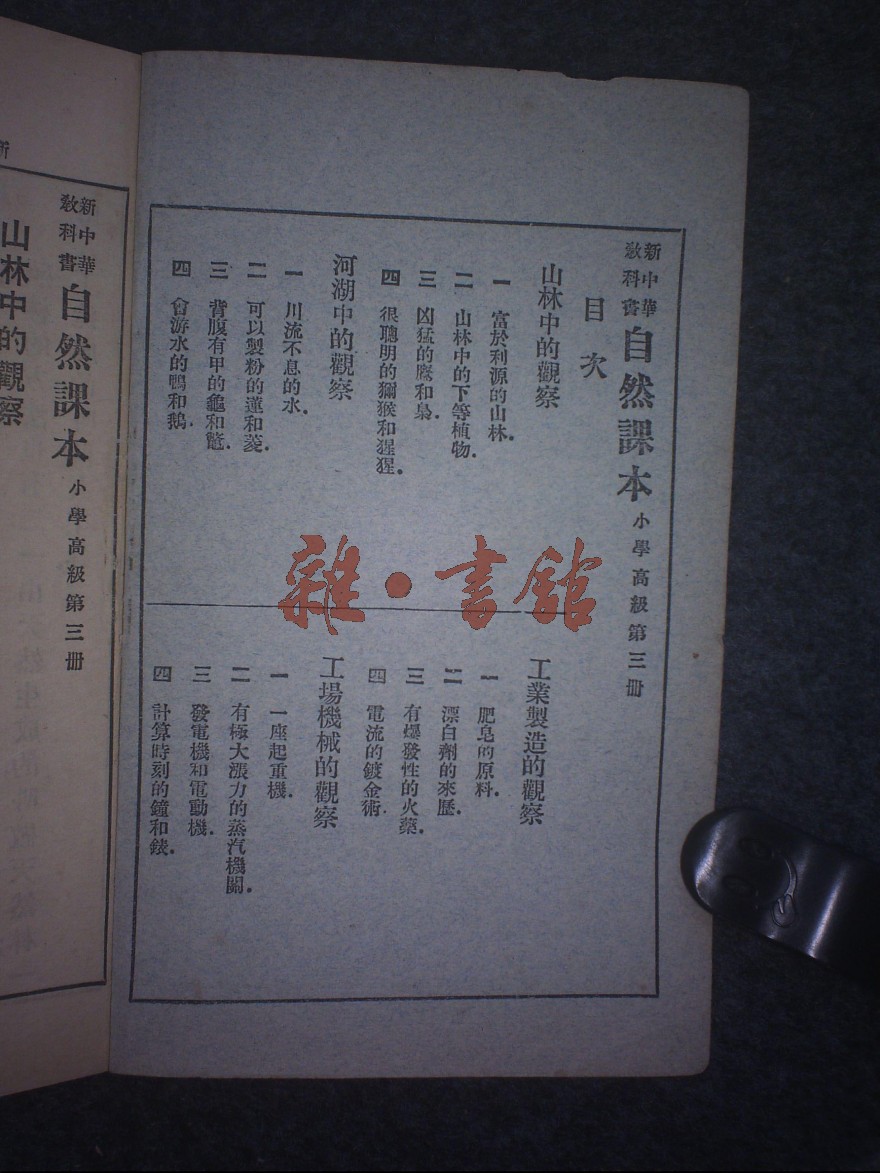 新中華
教科書
自然課本
小學高級第三冊
目次
山林中的觀察
一 富於利源的山林.
二 山林中的下等植物.
三 凶猛的鷹和梟.
四 很聰明的獼猴和猩猩.
河湖中的觀察
一 川流不息的水.
二 可以製粉的蓮和菱.
三 背腹有甲的龜和鼈.
四 會游水的鴨和鵝.
工業製造的觀察
一 肥皂的原料.
二 漂白劑的來歷.
三 有爆發性的火藥.
四 電流的鍍金術.
工場機械的觀察
一 一座起重機.
二 有極大漲力的蒸汽機關.
三 發電機和電動機.
四 計算時刻的鐘和錶.
新中華
教科書
自然課本
小學高級第三冊
山林中的觀察
新
雜·書館